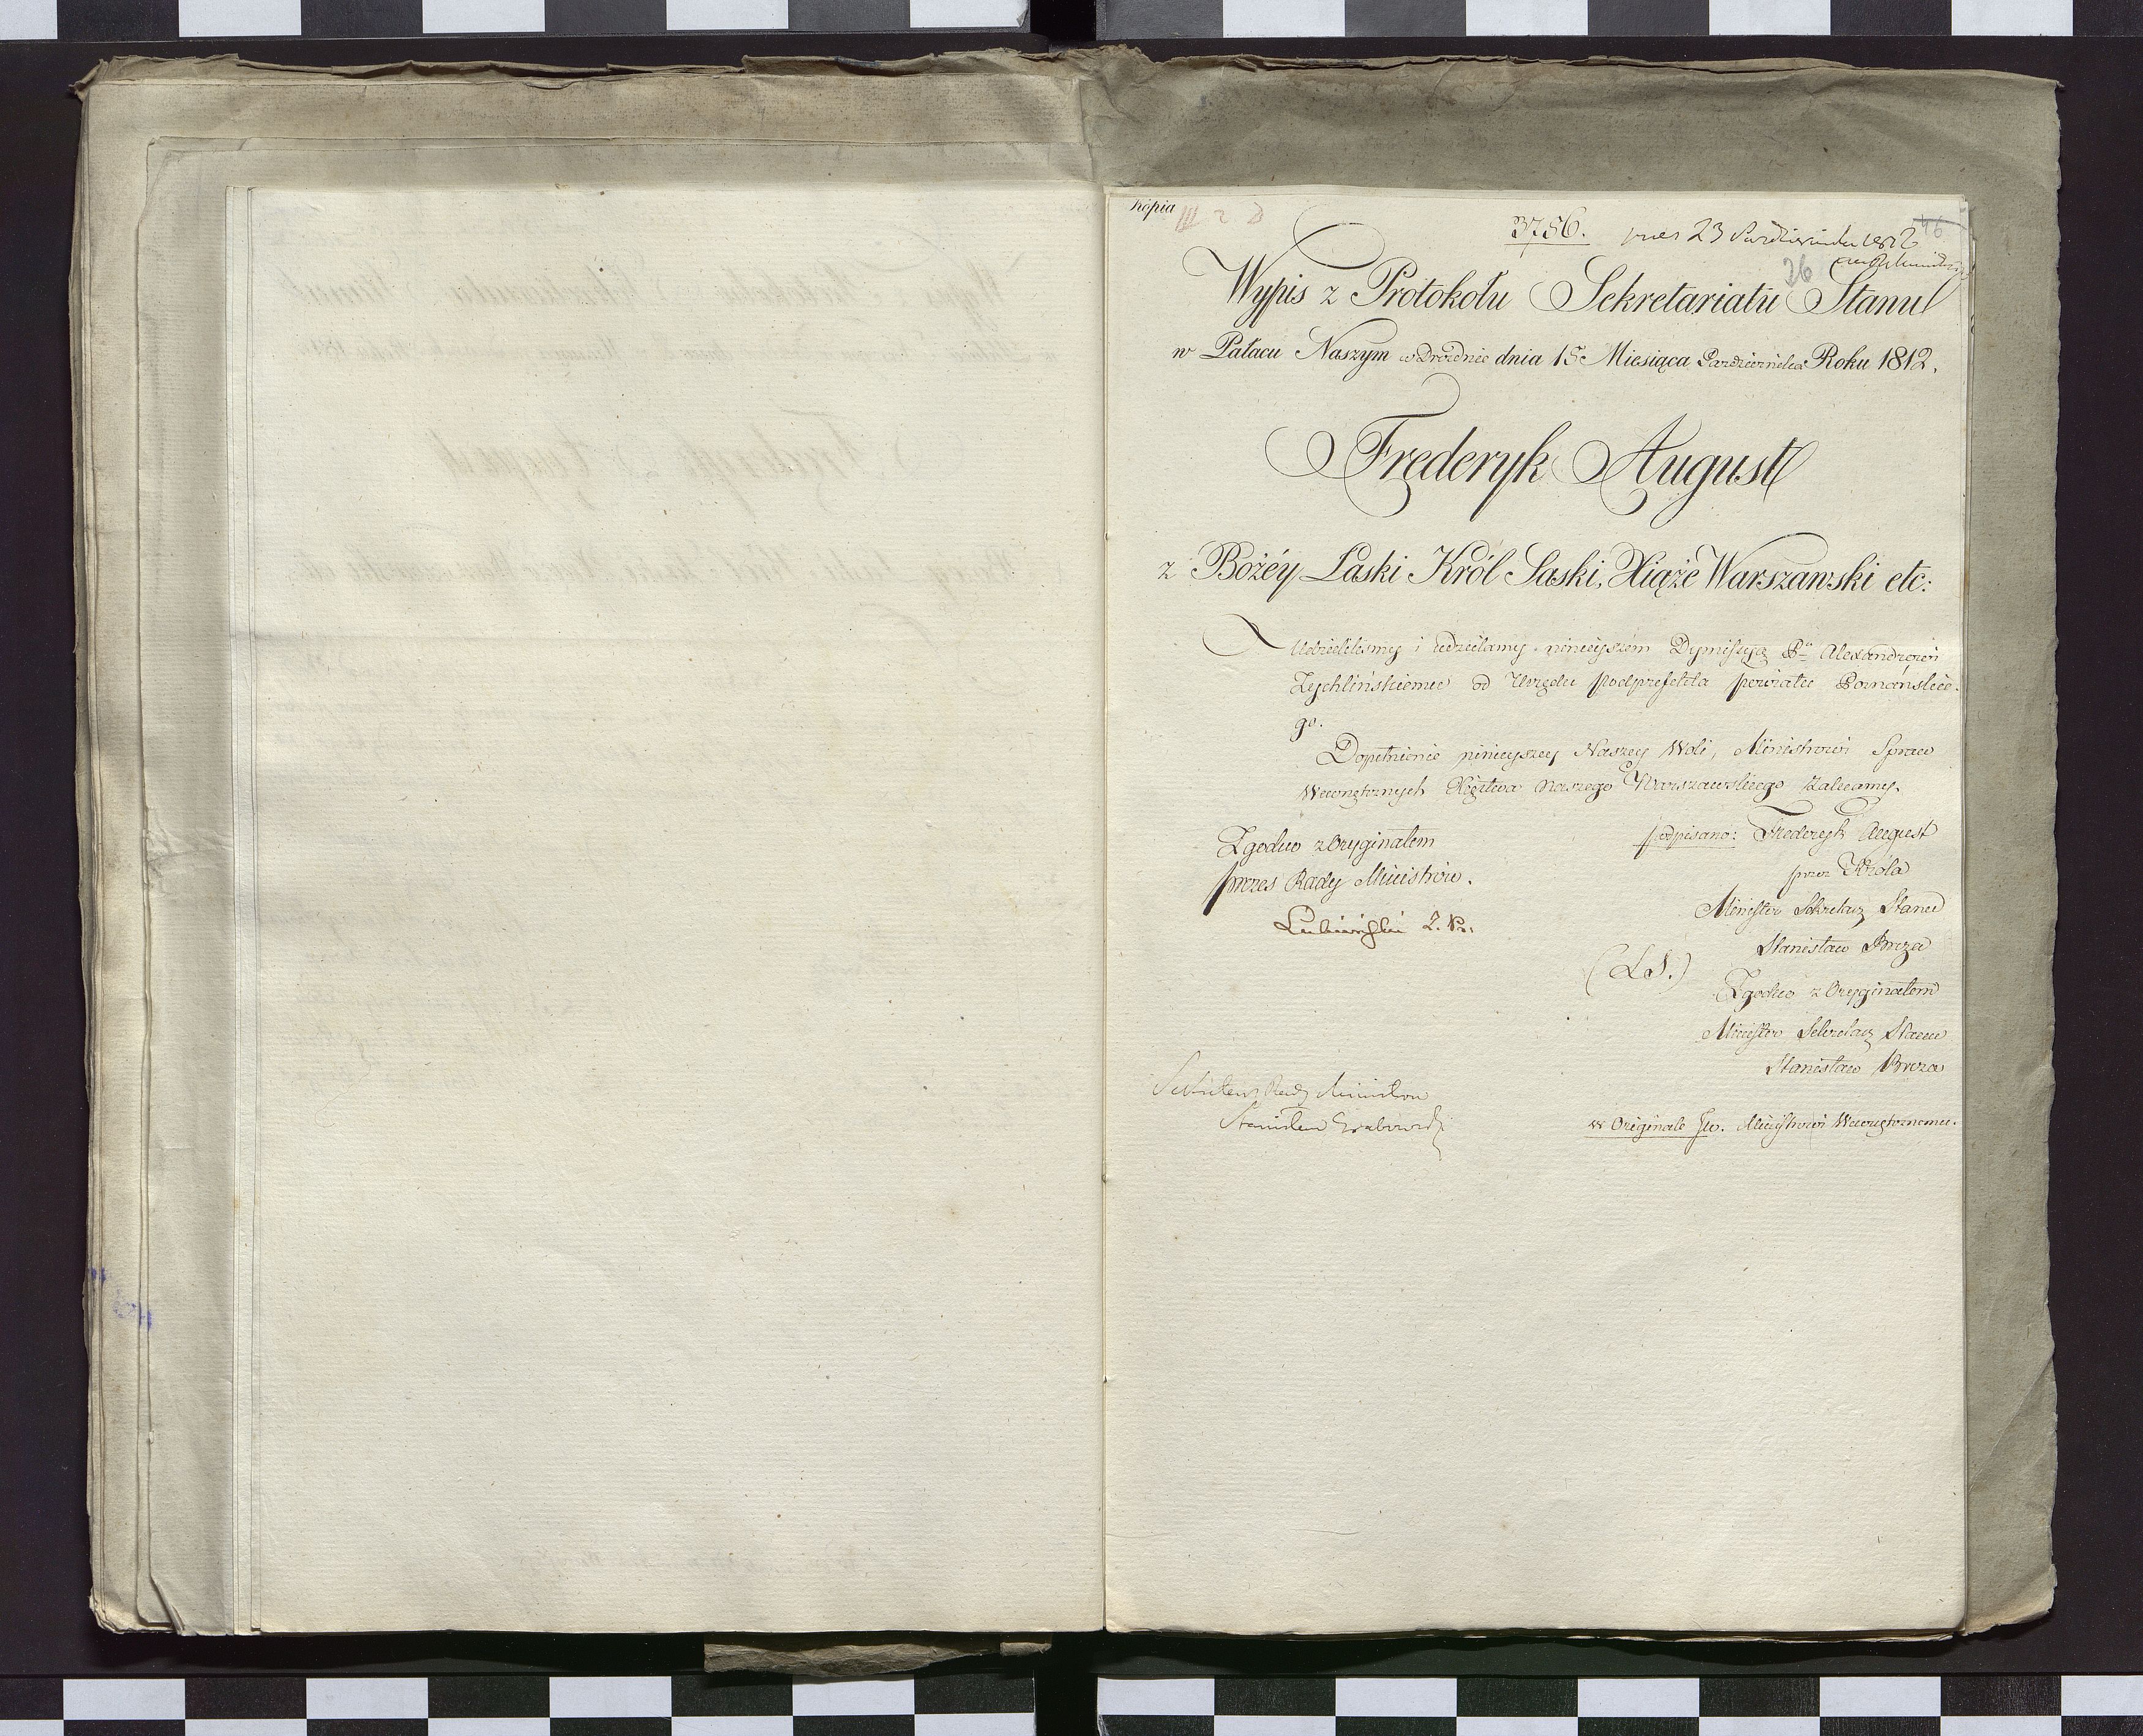 Kopia III 2 D
3756. pres 23 Października 1812
46
26
Wypis z Protokołu Sekretariatu Stanu
w Pałacu Naszym w Dreźnie dnia 15 Miesiąca Października Roku 1812.
Frederyk August
z Bożéy Łaski Król Saski, Xiąże Warszawski etc:
Udzieliliśmy i udzielamy ninieyszém Dymissyą Pu Alexandrowi
Zychlińskiemu od Urzędu Podprefekta powiatu Poznańskie-
go.
Dopełnienie ninieyszey Naszey Woli, Ministrowi Spraw
Wewnętrznych Xięstwa Naszego Warszawskiego zalecamy.
Zgodno z Oryginałem
prezes Rady Ministrów.
Lubieński Z. Pr.
podpisano: Frederyk August
przez Króla
Minister Sekretarz Stanu
Stanisław Breza
(L.S.)
Zgodno z Oryginałem
Minister Sekretarz Stanu
Stanisław Breza
Sekretarz Rady Ministrów
Stanisław Grabowski
w Originale Jw. Ministrowi Wewnętrznemu.